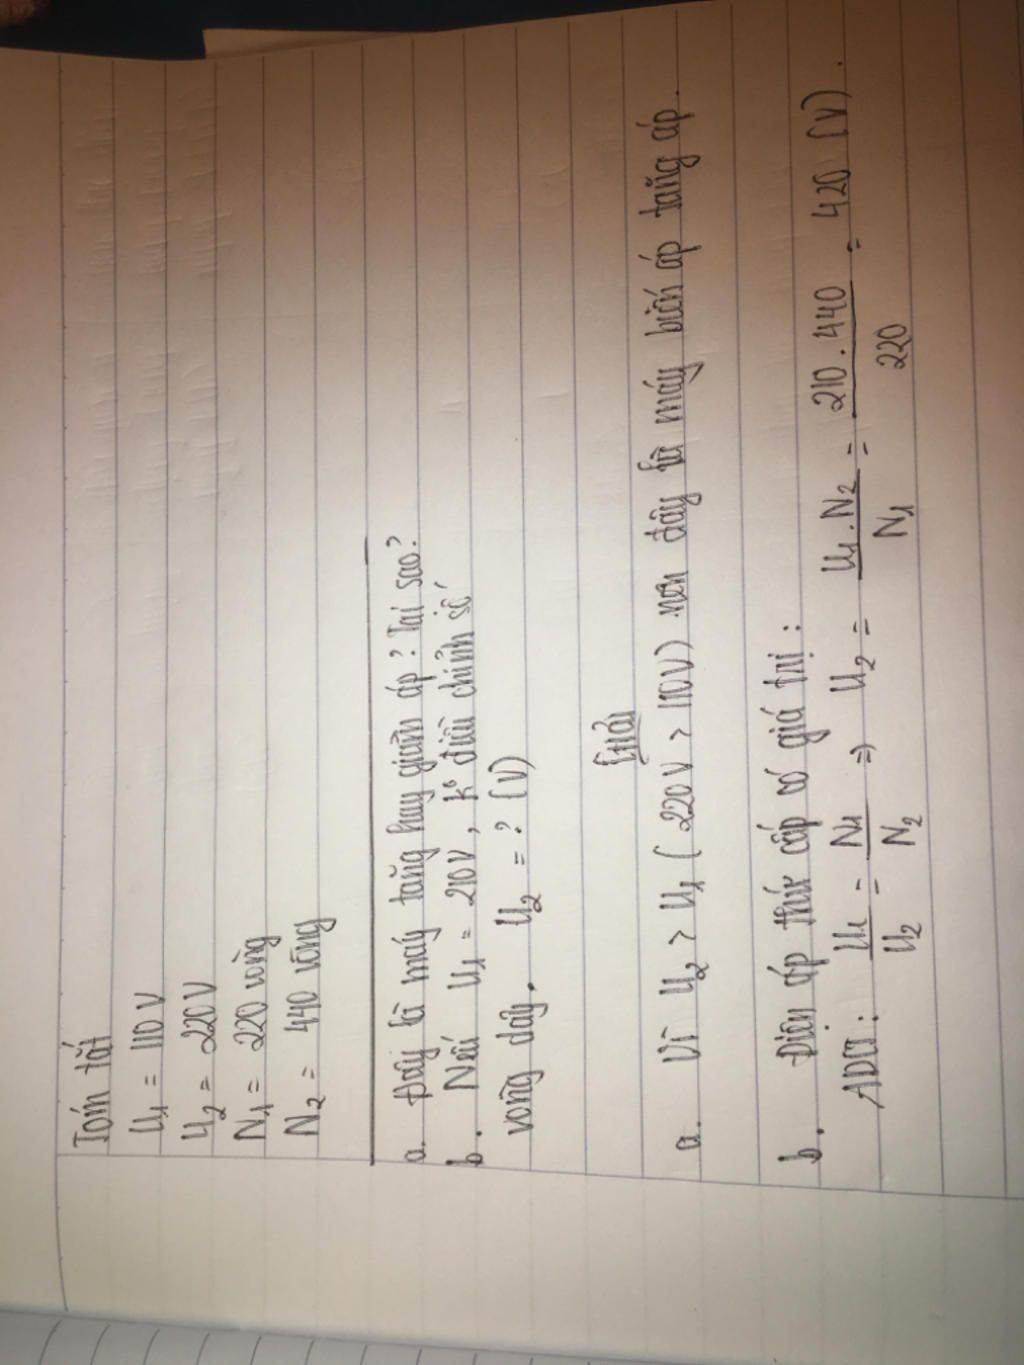 Tóm tắt
U₁ = 110 V
U₂ = 220 V
N₁ = 220 vòng
N₂ = 440 vòng
a. Đây là máy tăng hay giảm áp? Tại sao?
b. Nếu U₁ = 210V, k° điều chỉnh số
vòng dây. U₂ = ? (V)
Giải
a. Vì U₂ > U₁ (220V > 110V) nên đây là máy biến áp tăng áp.
b. Điện áp thứ cấp có giá trị:
ADCT: U₁/U₂ = N₁/N₂ => U₂ = U₁.N₂/N₁ = 210.440/220 = 420 (V).